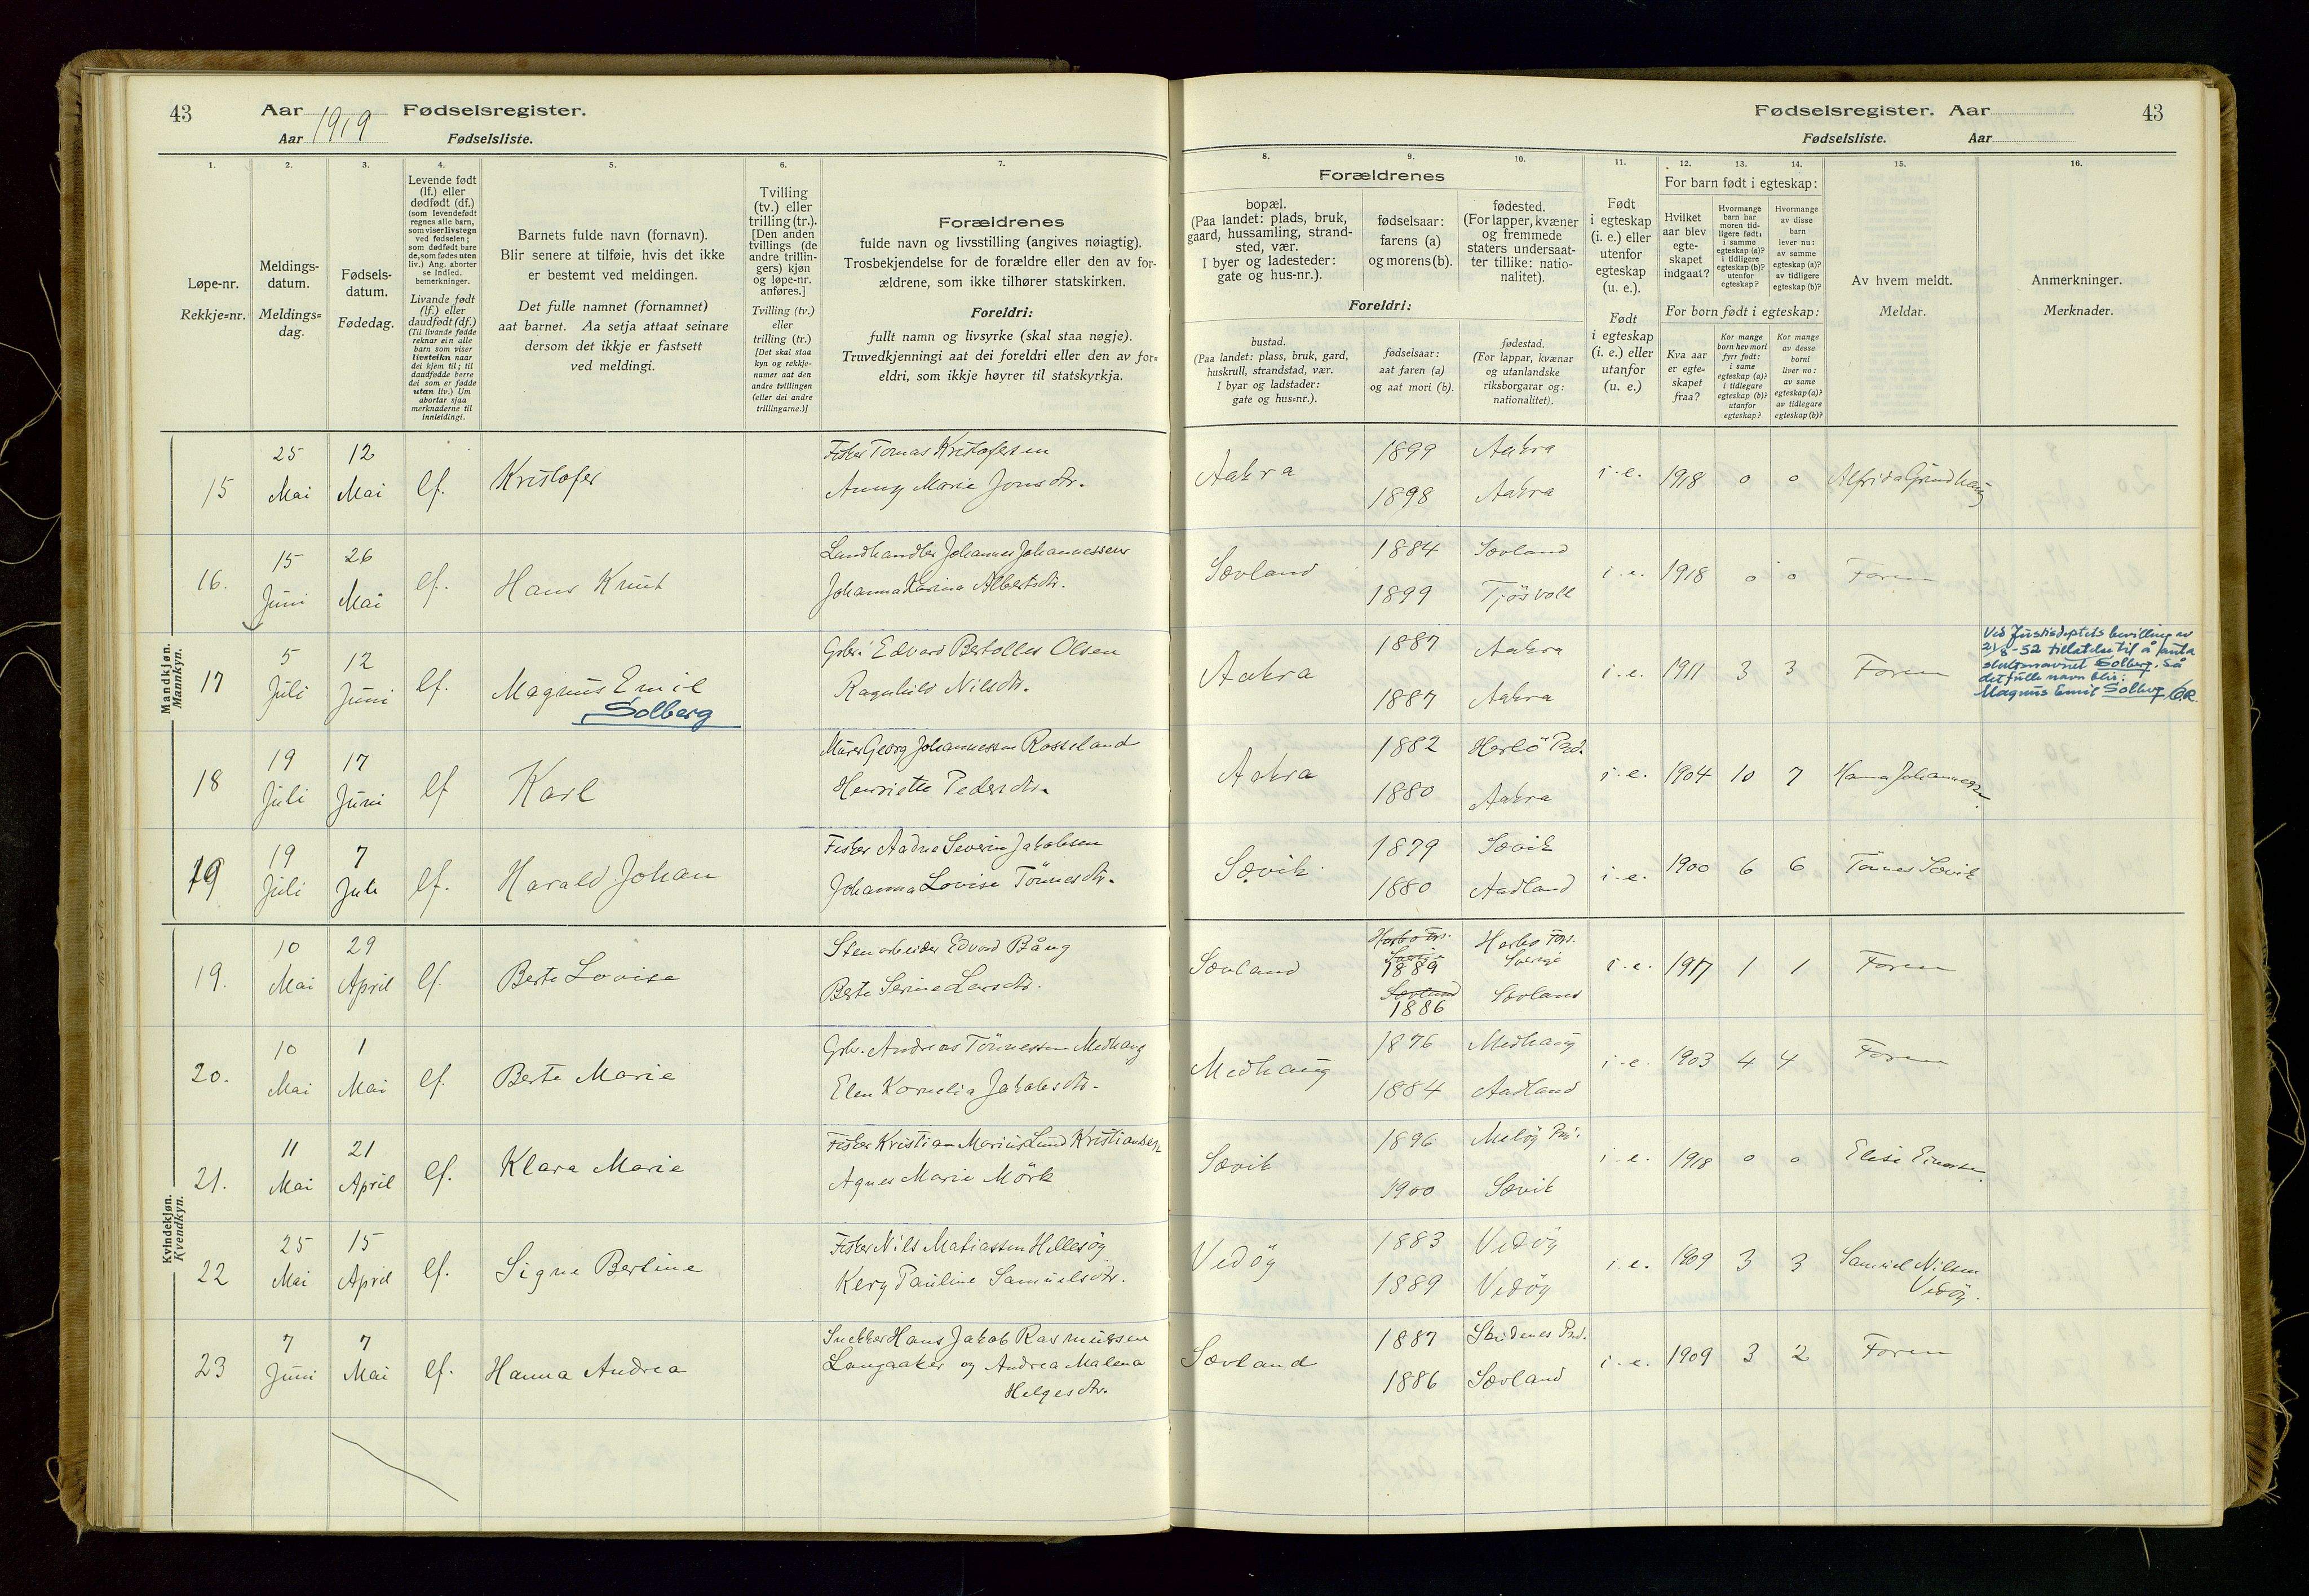 43
Aar 1919 Fødselsregister.
Aar Fødselsliste.
1.
2.
3.
4.
5.
6.
7.
Løpe-nr.
Rekkje=nr.
Meldings-
datum.
Meldings=
dag.
Fødsels-
datum.
Fødedag.
Levende født
(lf.) eller
dødfødt (df.)
(som levendefødt
regnes alle barn,
som viser livstegn
ved fødselen;
som dødfødt bare
de, som fødes uten
liv.) Ang. aborter
se indled.
bemerkninger.
Livande født
(lf.) eller
daudfødt (df.)
(Til livande fødde
reknar ein alle
barn som viser
livsteikn naar
dei kjem til; til
daudfødde berre
dei som er fødde
utan liv.) Um
abortar sjaa
merknaderne til
innleidingi.
Barnets fulde navn (fornavn).
Blir senere at tilføie, hvis det ikke
er bestemt ved meldingen.
Det fulle namnet (fornamnet)
aat barnet. Aa setja attaat seinare
dersom det ikkje er fastsett
ved meldingi.
Tvilling
(tv.) eller
trilling (tr.).
[Den anden
tvillings (de
andre trillin-
gers) kjøn
og løpe-nr.
anføres.]
Tvilling (tv.)
eller
trilling (tr.)
[Det skal staa
kyn og rekkje-
numer aat den
andre tvillingen
(eller dei andre
trillingarne.)]
Forældrenes
fulde navn og livsstilling (angives nøiagtig).
Trosbekjendelse for de forældre eller den av for-
ældrene, som ikke tilhører statskirken.
Foreldri:
fullt namn og livsyrke (skal staa nøgje).
Truvedkjenningi aat dei foreldri eller den av for=
eldri, som ikkje høyrer til statskyrkja.
Mandkjøn.
Mannkyn.
15
25 Mai
12 Mai
lf.
Kristofer
Fisker Tomas Kristofersen
Anny Marie Jonsdtr.
16.
15 Juni
26 Mai
lf.
Hans Knut
Landhandler Johannes Johannessen
Johanna Karina Albertsdtr.
17
5 Juli
12 Juni
lf.
Magnus Emil
Solberg
Gbr. Edvard Bertolles Olsen
Ragnhild Nilsdtr.
18
19 Juli
17 Juni
lf
Karl
Murer Georg Johannessen Rosseland
Henriette Pedersdtr.
19
19 Juli
7 Juli
lf.
Harald Johan
Fisker Aadne Severin Jakobsen
Johanna Lovise Tönnesdtr.
Kvindekjøn.
Kvendkyn.
19.
10 Mai
29 April
lf.
Berte Lovise
Stenarbeider Edvard Bång
Berte Serine Larsdtr.
20.
10 Mai
1 Mai
lf.
Berte Marie
Gbr. Andreas Tönnessen Medhaug
Elen Kornelia Jakobsdtr.
21.
11 Mai
21 April
lf.
Klara Marie
Fisker Kristian Marius Lund Kristiansen
Agnes Marie Mörk
22
25 Mai
15 April
lf.
Signe Bertine
Fisker Nils Matiassen Hillesöy
Kery Pauline Samuelsdtr.
23
7 Juni
7 Mai
lf.
Hanna Andrea
Snekker Hans Jakob Rasmussen
Langaaker og Andrea Malena
Helgesdtr.
Fødselsregister. Aar
43
Fødselsliste. Aar
8.
9.
10.
11.
12.
13.
14.
15.
16.
Forældrenes
bopæl.
(Paa landet: plads, bruk,
gaard, hussamling, strand-
sted, vær.
I byer og ladesteder:
gate og hus-nr.).
fødselsaar:
farens (a)
og morens (b).
fødested.
(For lapper, kvæner
og fremmede
staters undersaat-
ter tillike: natio-
nalitet).
Foreldri:
bustad.
(Paa landet: plass, bruk, gard,
huskrull, strandstad, vær.
I byar og ladstader:
gate og hus=nr.).
fødselsaar:
aat faren (a)
og aat mori (b).
fødestad.
(For lappar, kvænar
og utanlandske
riksborgarar og:
nationalitet).
Født
i egteskap
(i. e.) eller
utenfor
egteskap
(u. e.).
Født
i egteskap
(i. e.) eller
utanfor
(u. e.)
For barn født i egteskap:
Hvilket
aar blev
egte-
skapet
indgaat?
Hvormange
barn har
moren tid-
ligere født:
i samme
egteskap (a)?
i tidligere
egteskap (b)?
utenfor
egteskap?
Hvormange
av disse
barn
lever nu:
av samme
egteskap (a)?
av tidligere
egteskap (b)?
For born født i egteskap:
Kva aar
er egte=
skapet
fraa?
Kor mange
born hev mori
fyrr født:
i same
egteskap (a)?
i tidlegare
egteskap (b)?
utanfor
egteskap?
Kor mange
av desse
borni
liver no:
av same
egteskap (a)?
av tidlegare
egteskap (b)?
Av hvem meldt.
Meldar.
Anmerkninger.
Merknader.
Aakra
1899
1898
Aakra
Aakra
i. e. 1918 0 0
Alfrida Grindhaug
Sævland
1884
1899
Sævland
Tjösvoll
i. e. 1918 0 0
Faren
Aakra
1887
1887
Aakra
Aakra
i. e. 1911 3 3
Faren
Ved Justisdeptets bevilling av
21/8-52 tillatelse til å anta
slektsnavnet Solberg, så
det fulle navn blir:
Magnus Emil Solberg
Aakra
1882
1880
Herlö Prd.
Aakra
i. e. 1904 10 7
Hanna Johannessen
Sævik
1879
1880
Sævik
Aadland
i. e. 1900 6 6
Tönnes Sævik
Sævland
1889
Sævland
1886
Harbo
Sverige
Sævland
i. e. 1917 1 1
Faren
Medhaug
1876
1884
Medhaug
Aadland
i. e. 1903 4 4
Faren
Sævik
1896
1900
Melöy
Sævik
i. e. 1918 0 0
Elise Einarsen
Vedöy
1883
1889
Vedöy
Vedöy
i. e. 1909 3 3
Samuel Nilsen
Vedöy.
Sævland
1887
1886
Skudenes Prd.
Sævland
i. e. 1909 3 2
Faren